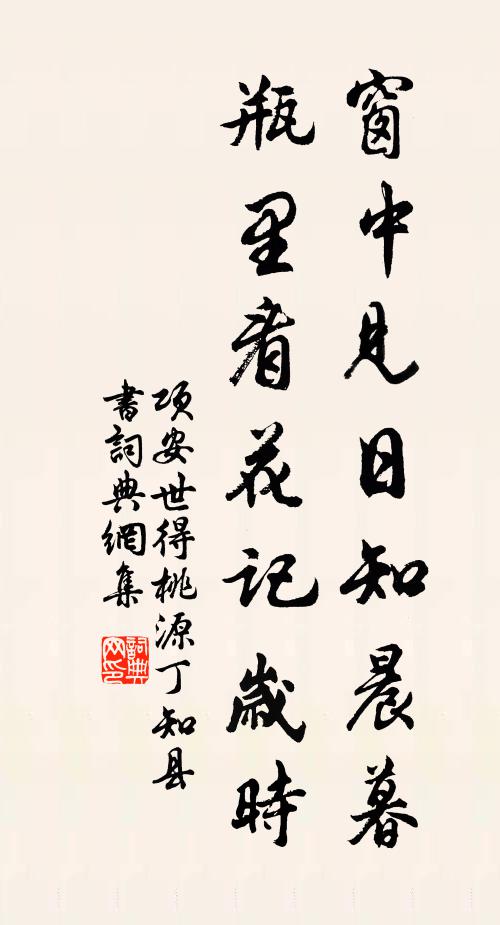 窗中見日知晨暮
瓶里看花記歲時
項安世得桃源丁知县
書詞典網集
詞典網印